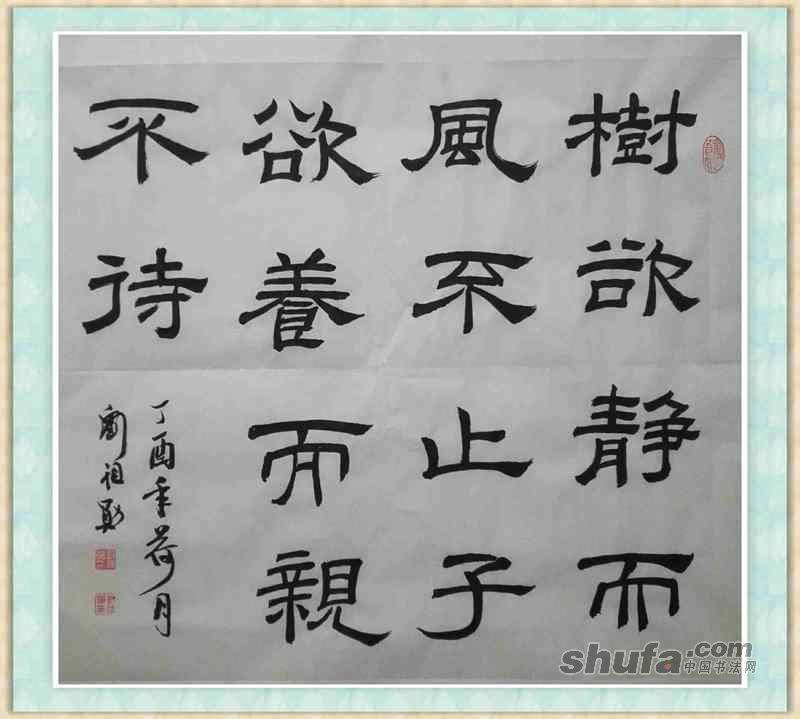 樹欲静而
風不止子
欲養而親
不待
丁酉年荷月
劉祖
shufa.com
中国书法网